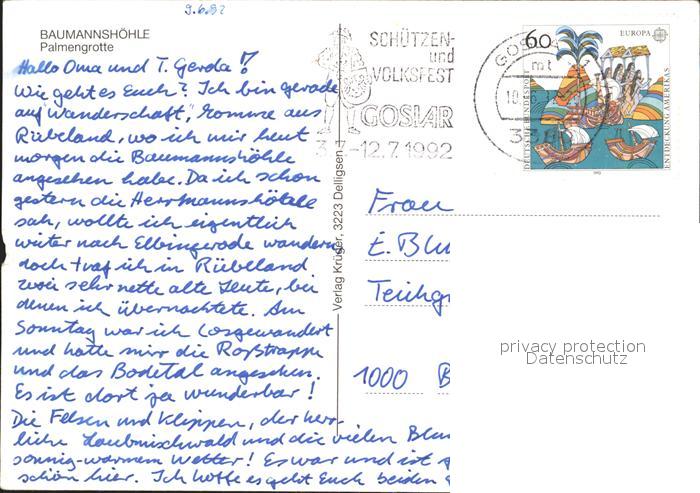 9.6.92
BAUMANNSHÖHLE
Palmengrotte
Hallo Oma und T. Gerda!
Wie geht es Euch? Ich bin gerade
auf "Wanderschaft", komme aus
Rübeland, wo ich mir heut
morgen die Baumannshöhle
angesehen habe. Da ich schon
gestern die Hermannshöhle
sah, wollte ich eigentlich
weiter nach Elbingerode wandern
doch traf ich in Rübeland
zwei sehr nette alte Leute, bei
denen ich übernachtete. Am
Sonntag war ich losgewandert
und hatte mir die Roßtrappe
und das Bodetal angesehen.
Es ist dort ja wunderbar!
Die Felsen und Klippen, der herr-
liche Laubmischwald und die vielen Blum
sonnig-warmem Wetter! Es war und ist
schön hier. Ich hoffe es geht Euch beiden
Verlag Krüger, 3223 Delligsen
SCHÜTZEN-
und
VOLKSFEST
GOSLAR
-12.7.1992
GOSLA
mt
10
60
EUROPA
DEUTSCHE BUNDESPOST
ENTDECKUNG AMERIKAS
1992
Frau
E. Blu
Teichg
1000 B
privacy protection
Datenschutz